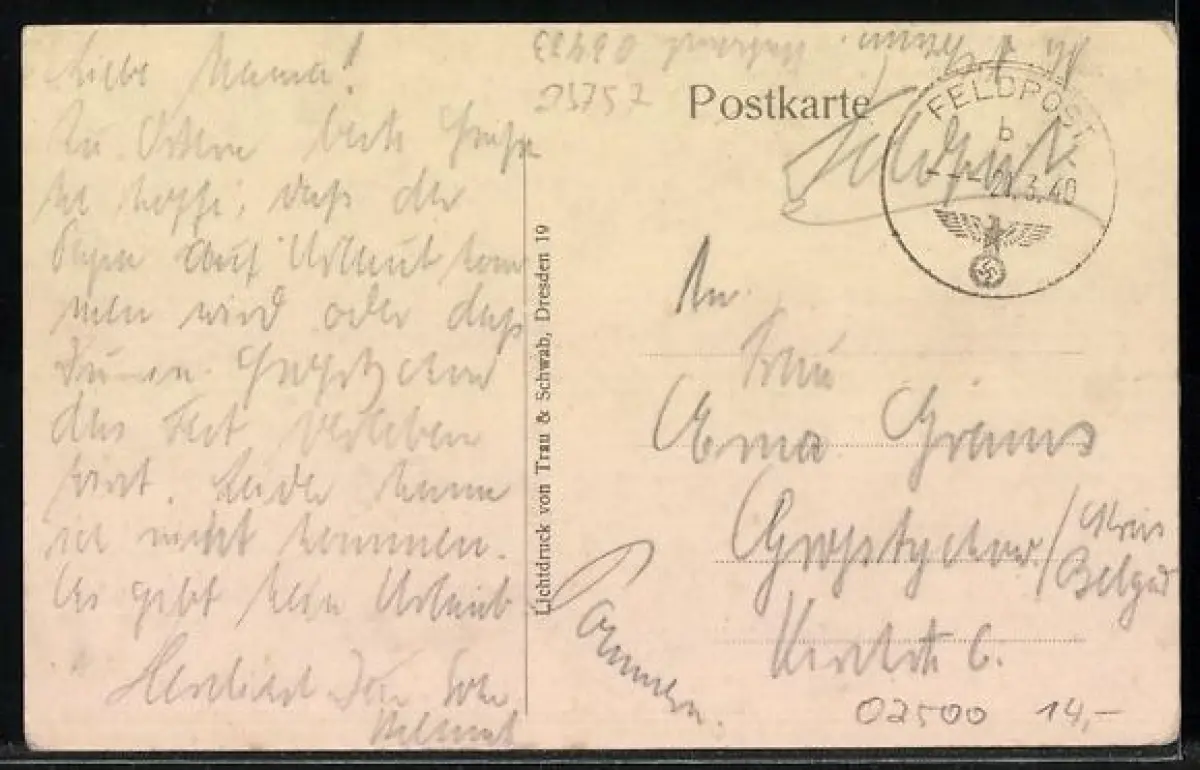 Liebe Mama!
Zu Ostern beste Grüße
daß der
Papa auf Urlaub kom
men wird oder daß
Du in Großtychow
das Fest verleben
wirst. Leider kann
ich nicht kommen.
Es gibt kein Urlaub
Herzlichst Dein Sohn
Helmut
23757
Postkarte
Feldpost
FELDPOST
b
- - - 21.3.40
An
Frau
Erna Grams
Großtychow / Kreis
Belgard
Pommern.
6.
02500 14,-
Lichtdruck von Trau & Schwab, Dresden 19